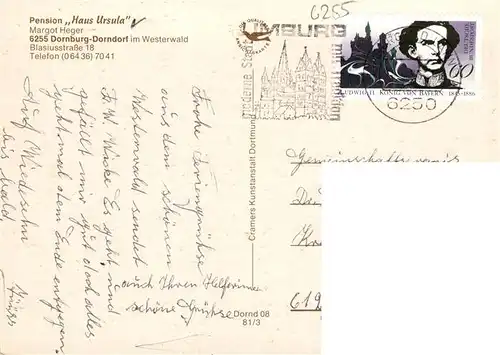 Pension „Haus Ursula"
Margot Heger
6255 Dornburg-Dorndorf im Westerwald
Blasiusstraße 18
Telefon (06436) 7041
6255
LIMBURG
moderne Stadt
6250
60
LUDWIG II. KÖNIG VON BAYERN 1845-1886
Cramers Kunstanstalt Dortmund
Dornd 08
81/3
Frohe Feriengrüße
aus dem schönen
Westerwald sendet
Es geht und
gefällt mir gut doch alles
geht mal dem Ende entgegen.
Auf Wiedersehn
bis bald.
auch Ihren Helferinnen
schöne Grüße
Gemeinschaftspraxis
Dr.